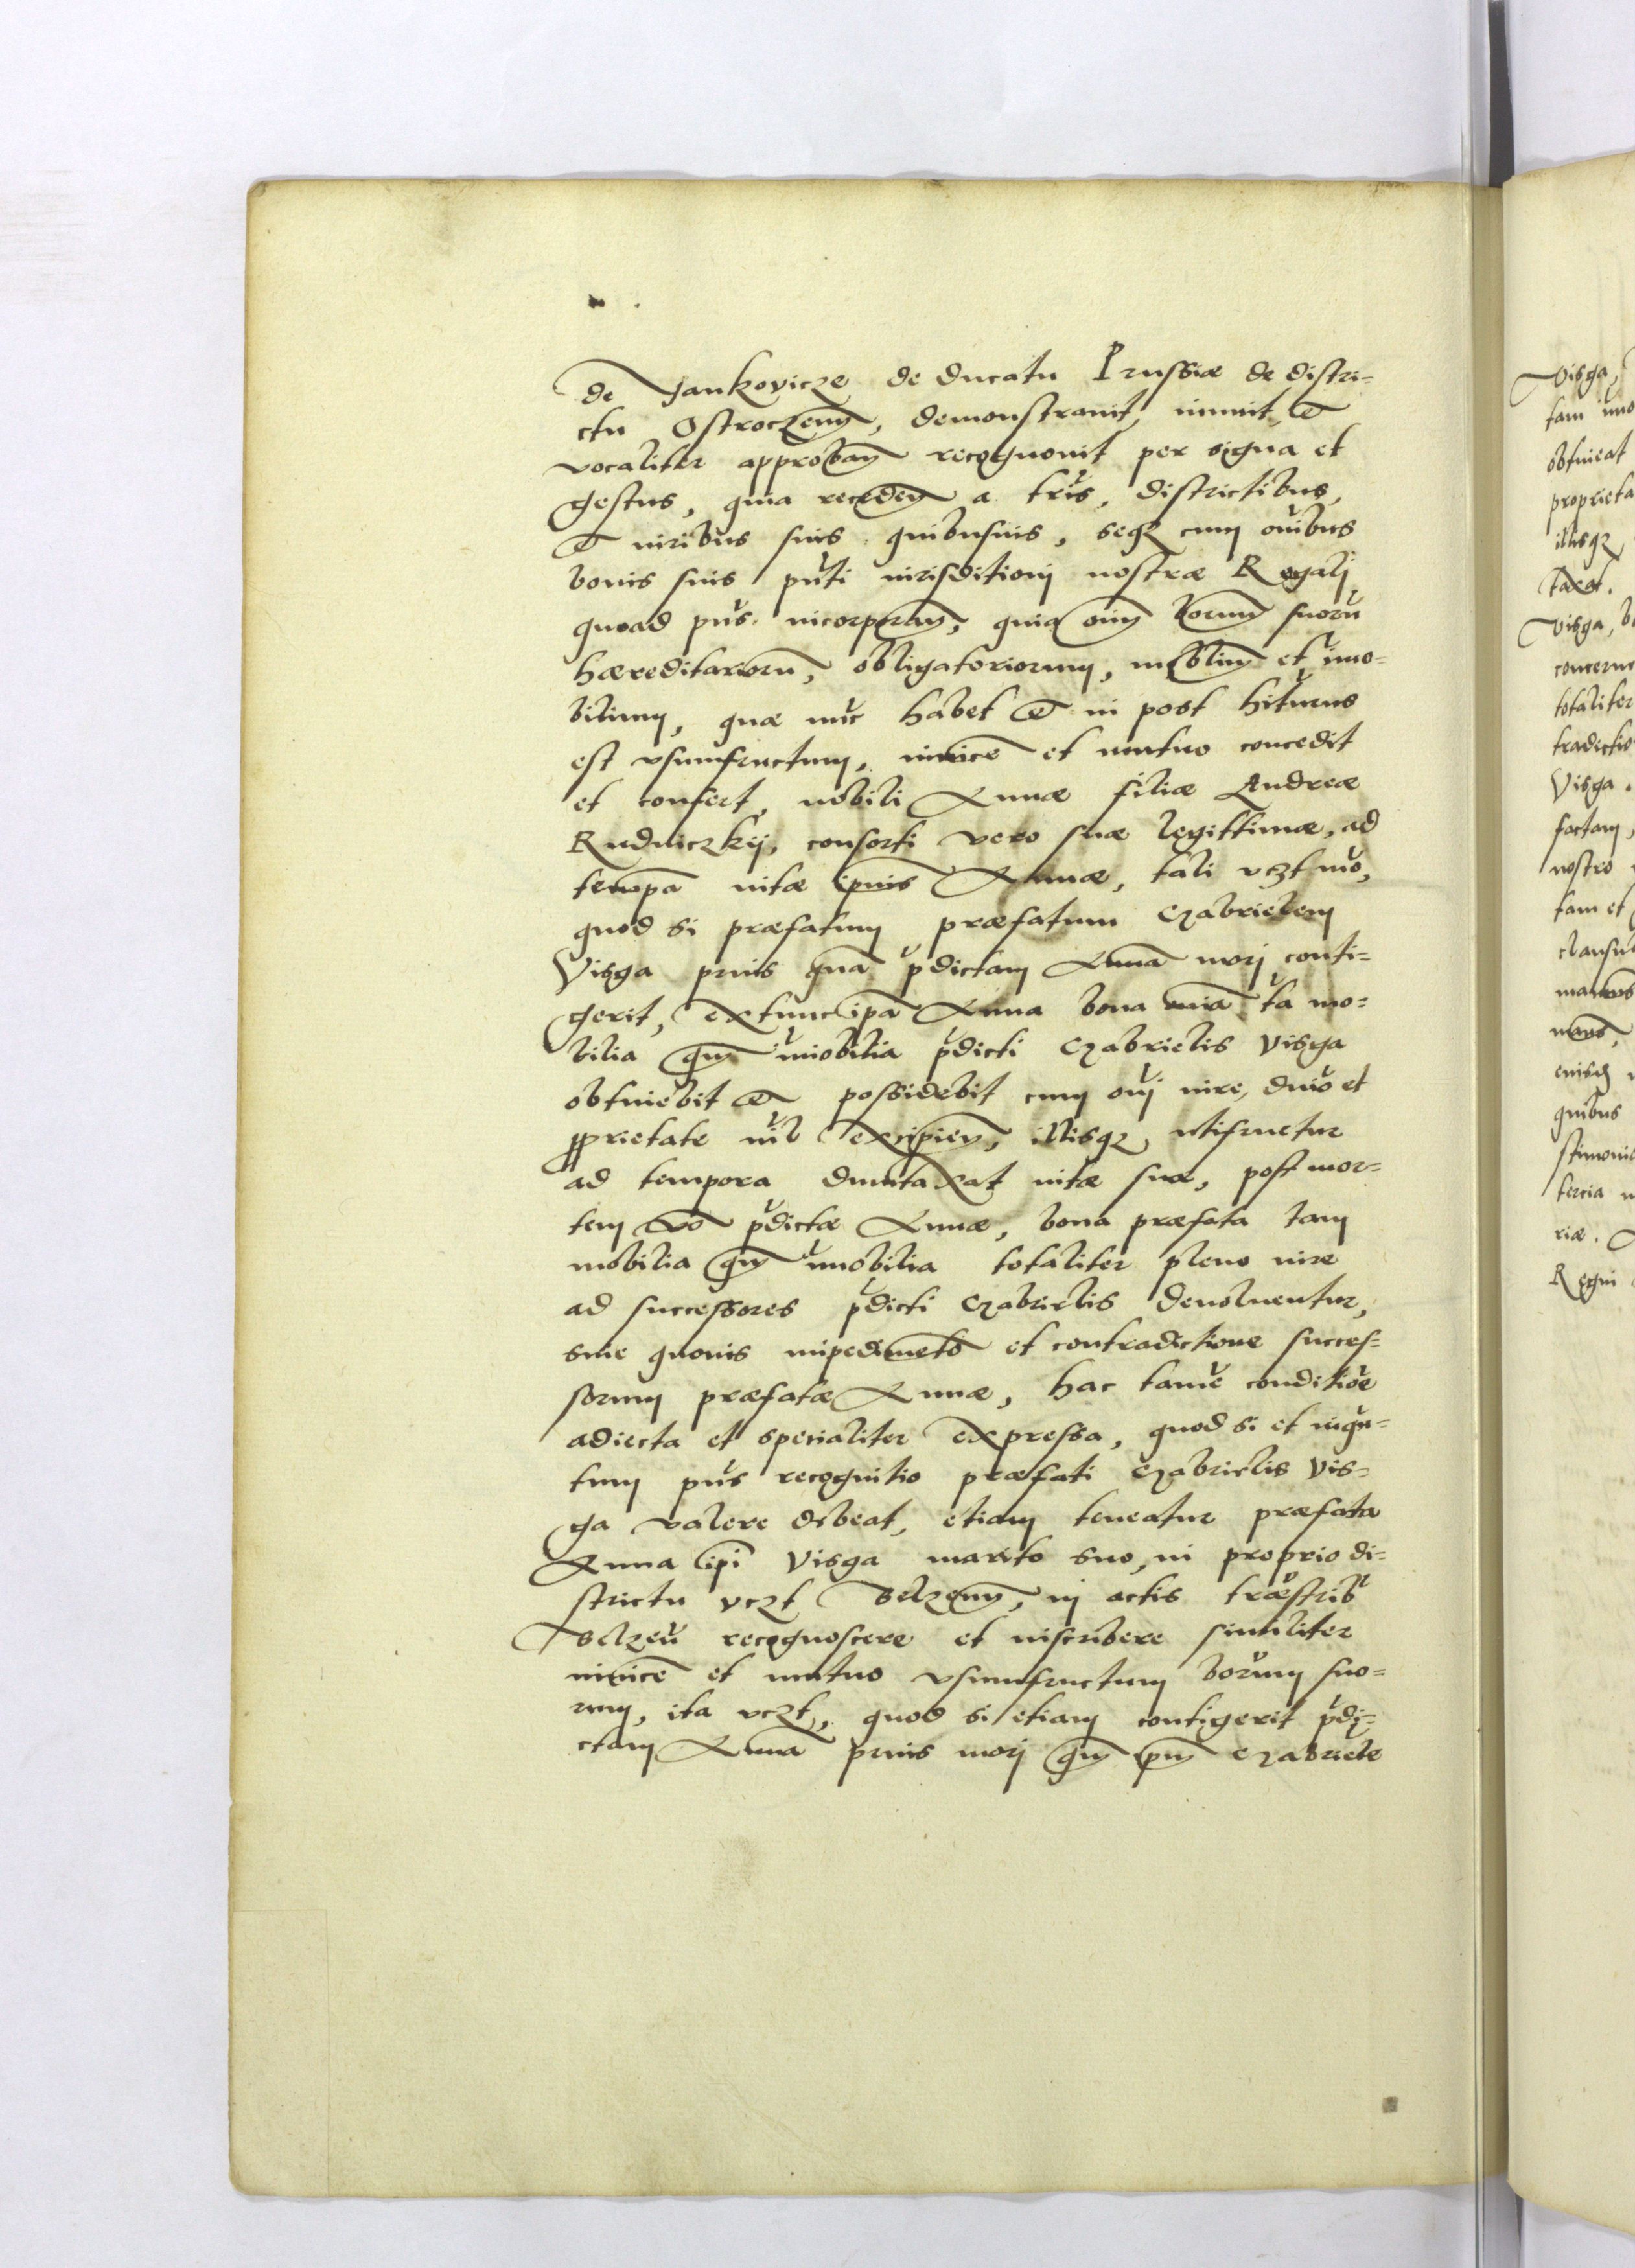 de Jankovicze de ducatu Prussiæ de distri-
ctu Ostroczeny, demonstrauit, innuit, et
vocaliter approban recognouit per signa et
gestus, quia receden a terris, districtibus,
et iuribus suis quibusuis, seqz cum oibus
bonis suis pnti iurisditionj nostræ Regalj
quoad pns. incorporan, quia oim bonorum suoru
hæreditarioru, obligatoriorum, mobliu et imo-
bilium, quæ nuc habet et in post hiturus
est vsumfructum, inuice et mutuo concedit
et confert, nobili Annæ filiæ Andreæ
Rudniczkij, consorti vero suæ legittimæ, ad
tempa uitæ ipsius Annæ, tali vczt mo,
quod si præfatum præfatum Gabrielem
Visga prius qua pdictam Anna morj conti-
gerit, extunc ipa Anna bona oia ta mo-
bilia qm imobilia pdicti Gabrielis Visga
obtinebit et possidebit cum oij iure, dnio et
pprietate nil excipien, illisqz utifruetur
ad tempora duntaxat uitæ suæ, post mor-
tem vo pdictæ Annæ, bona præfata tam
mobilia qm imobilia totaliter pleno iure
ad successores pdicti Gabrielis deuoluentur,
sine quouis impedimeto et contradictione succes-
sorum præfatæ Annæ, hac tame conditioe
adiecta et specialiter expressa, quod si et inqu-
tum pns recognitio præfati Gabrielis Vis-
ga valere debeat, etiam teneatur præfata
Anna ipi Visga marito suo, in proprio di-
strictu vczt Belzeny, in actis træstrib
Belzen recognoscere et inscribere similiter
inuice et mutuo vsumfructum borum suo-
rum, ita vczt, quod si etiam contigerit pdi-
ctam Anna prius morj qm ipm Gabriele
Visga,
tam imo
obtineat
proprieta
illisqz
taxat.
Visga, b
concerne
totaliter
tradictio
Visga.
factam,
nostro
tam et
clausul
manus
quibus
stimonio
tercia
riæ.
Regni